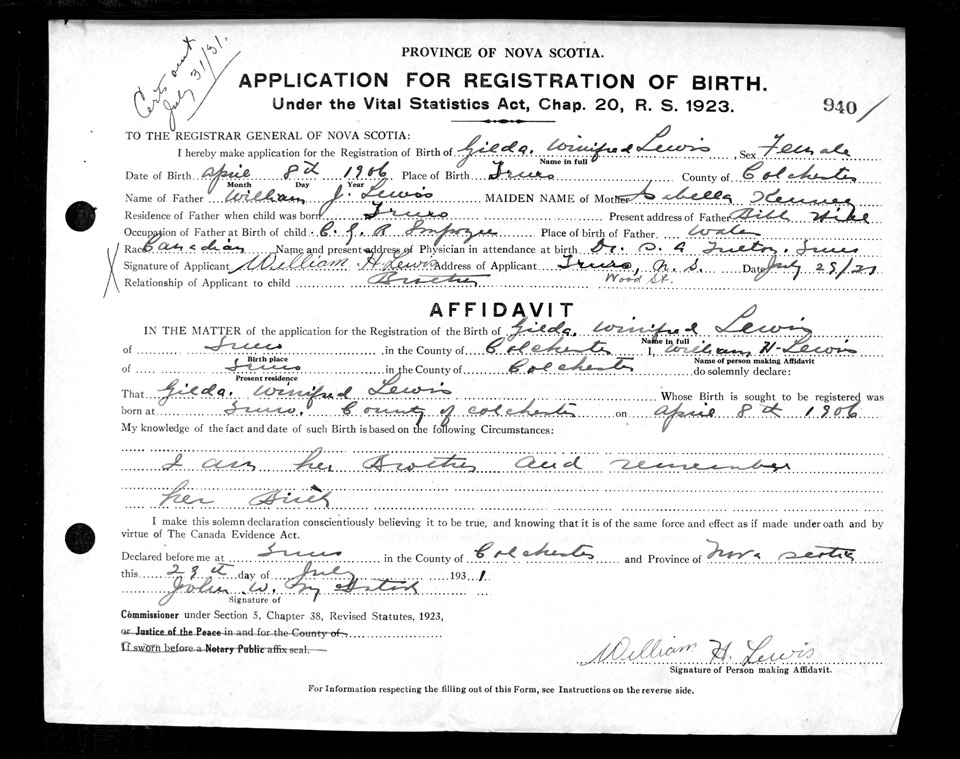 Certs sent
July 31/31.
PROVINCE OF NOVA SCOTIA.
APPLICATION FOR REGISTRATION OF BIRTH.
Under the Vital Statistics Act, Chap. 20, R. S. 1923.
940/
TO THE REGISTRAR GENERAL OF NOVA SCOTIA:
I hereby make application for the Registration of Birth of Gilda. Winifred Lewis Sex Female
Name in full
Date of Birth April 8th 1906 Place of Birth Truro County of Colchester
Month Day Year
Name of Father William J. Lewis MAIDEN NAME of Mother Isabella
Residence of Father when child was born Truro Present address of Father Bible Hill
Occupation of Father at Birth of child C. G. R Place of birth of Father Wales
Race Canadian Name and present address of Physician in attendance at birth Dr. S. A Truro
X Signature of Applicant William H Lewis Address of Applicant Truro, N. S. Date July 29/31
Relationship of Applicant to child Brother Wood St.
AFFIDAVIT
IN THE MATTER of the application for the Registration of the Birth of Gilda. Winifred Lewis
Name in full
of Truro in the County of Colchester I, William H. Lewis
Birth place Name of person making Affidavit
of Truro in the County of Colchester do solemnly declare:
Present residence
That Gilda. Winifred Lewis Whose Birth is sought to be registered was
born at Truro. County of Colchester on April 8th 1906
My knowledge of the fact and date of such Birth is based on the following Circumstances:
I am her Brother and remember
her Birth
I make this solemn declaration conscientiously believing it to be true, and knowing that it is of the same force and effect as if made under oath and by
virtue of The Canada Evidence Act.
Declared before me at Truro in the County of Colchester and Province of Nova Scotia
this 29th day of July 1931
John W.
Signature of
Commissioner under Section 5, Chapter 38, Revised Statutes, 1923,
or Justice of the Peace in and for the County of
If sworn before a Notary Public affix seal.
William H. Lewis
Signature of Person making Affidavit.
For Information respecting the filling out of this Form, see Instructions on the reverse side.